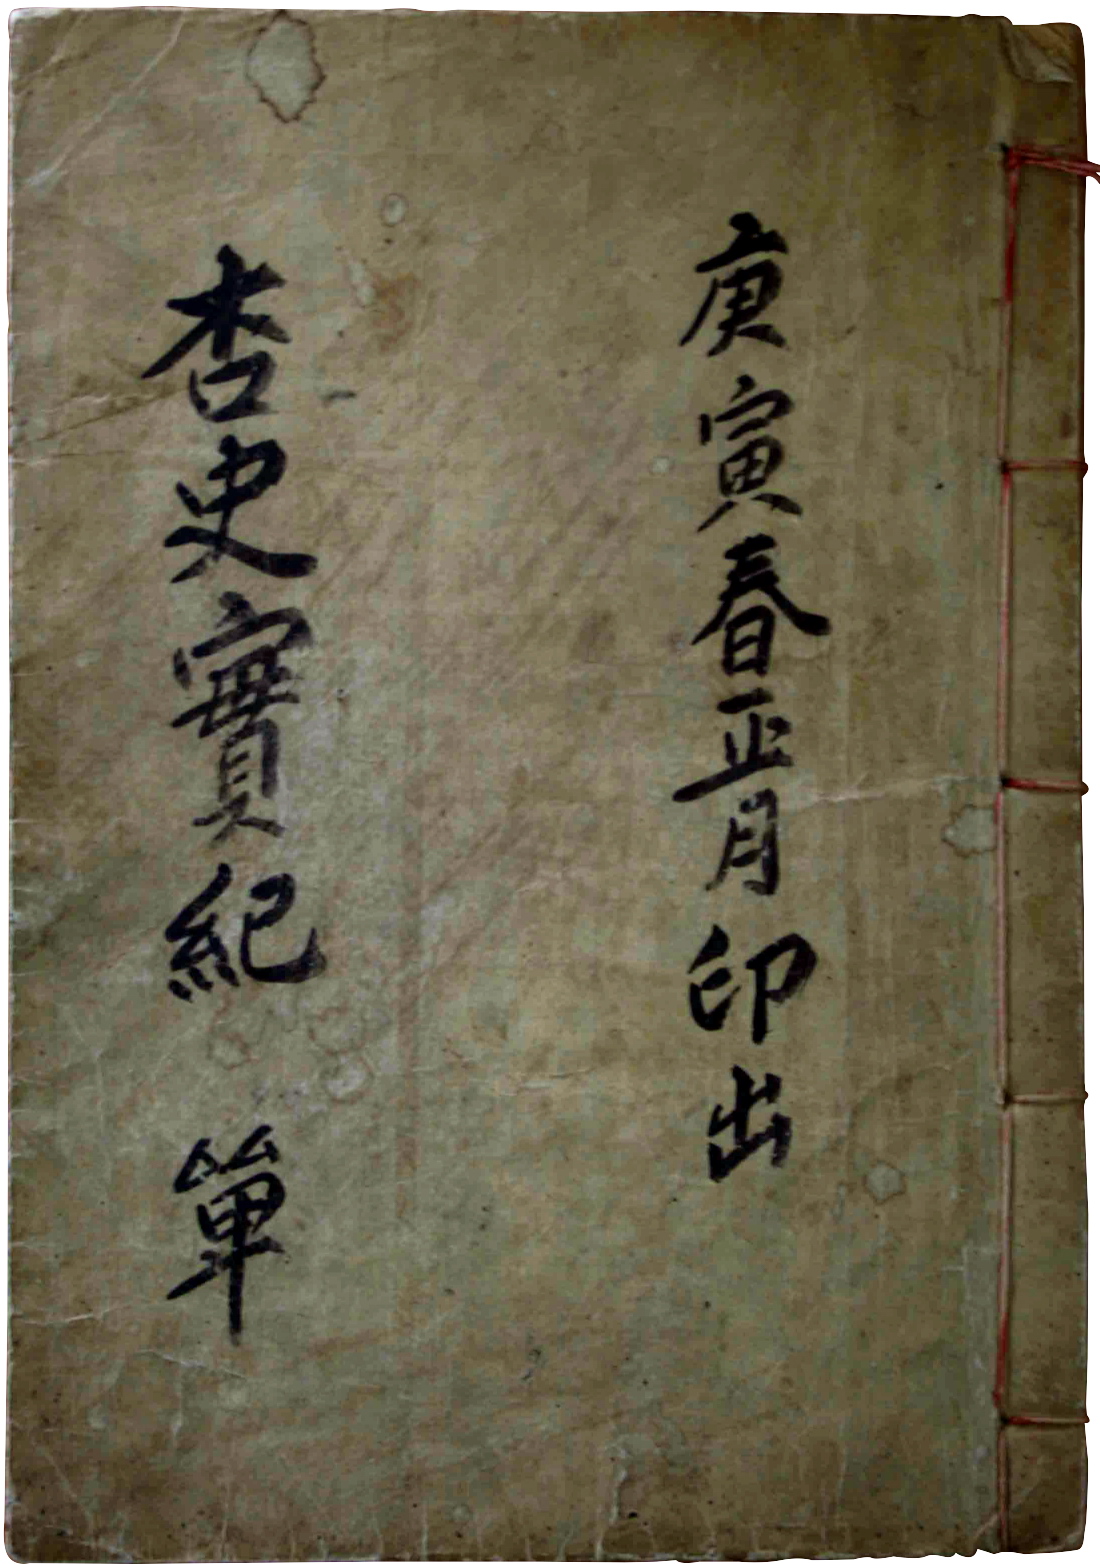 庚寅春正月印出
杏史實紀 單